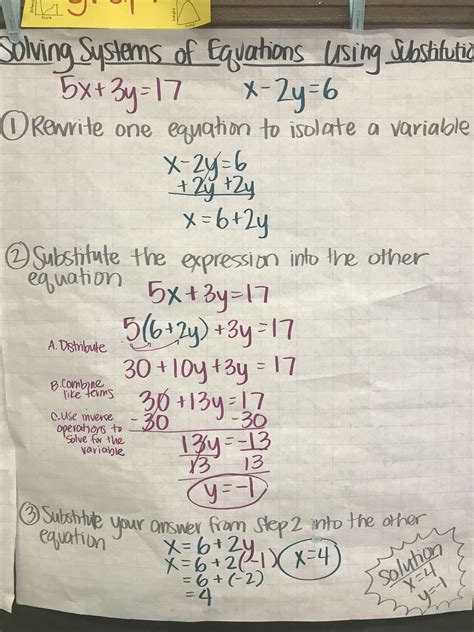 Solving Systems of Equations Using Substitutio
5x+3y=17 x-2y=6
① Rewrite one equation to isolate a variable
x-2y=6
+2y +2y
x=6+2y
② Substitute the expression into the other
equation
5x+3y=17
5(6+2y)+3y=17
A. Distribute
30+10y+3y=17
B. Combine
like terms
30+13y=17
-30 -30
C. Use inverse
operations to
solve for the
variable
13y=-13
13 13
y=-1
③ Substitute your answer from Step 2 into the other
equation
x=6+2y
x=6+2(-1) x=4
=6+(-2)
=4
Solution
x=4
y=-1